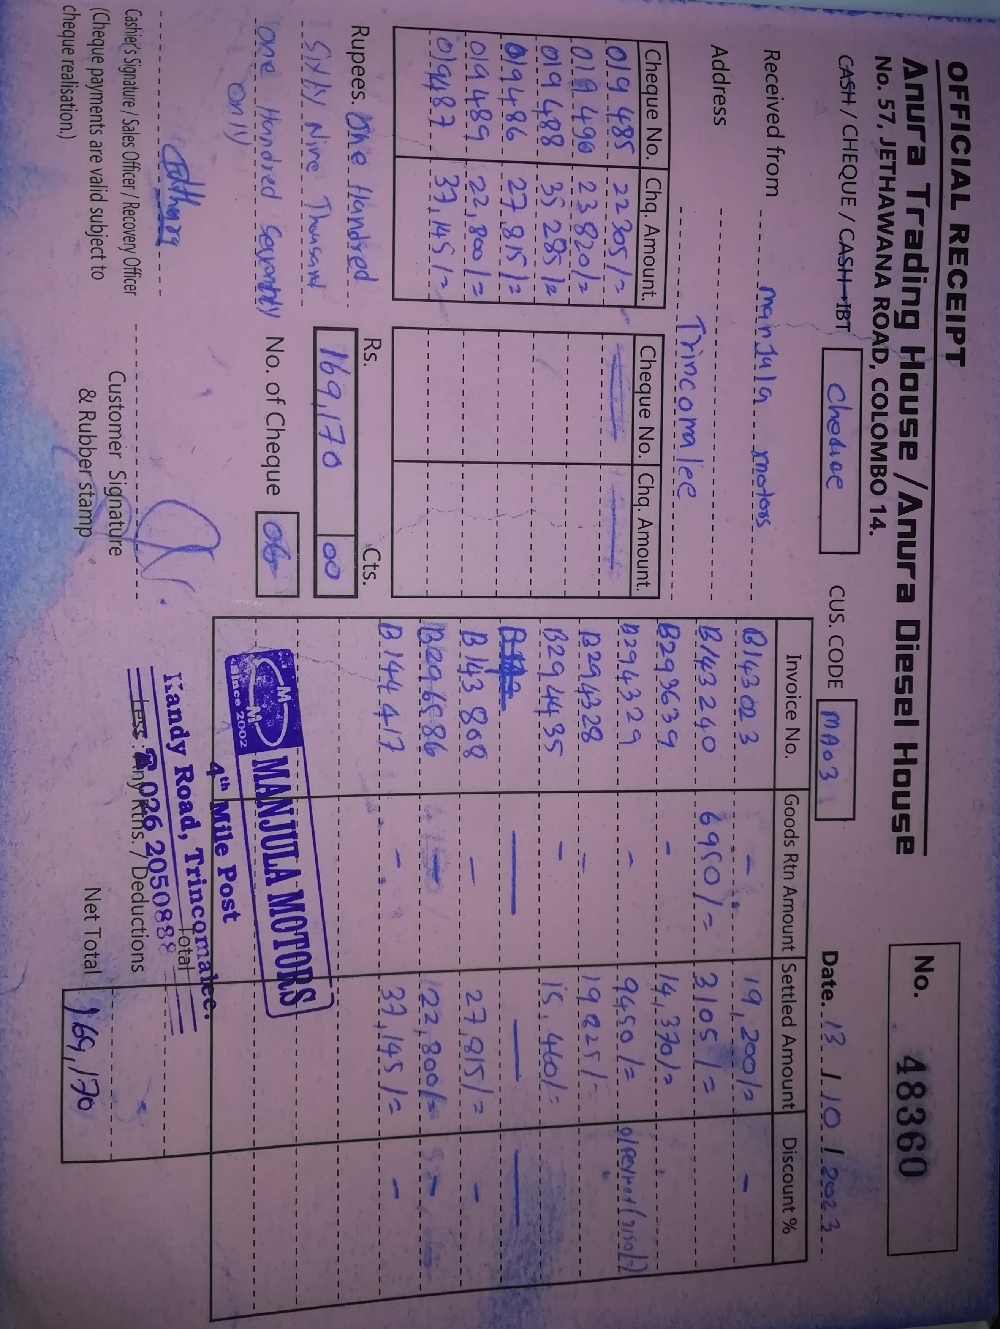 OFFICIAL RECEIPT
Anura Trading House / Anura Diesel House
No. 57, JETHAWANA ROAD, COLOMBO 14.
No. 48360
CASH / CHEQUE / CASH IBT Cheque CUS. CODE MA03 Date. 13 / 10 / 2023
Received from manjula motors
Address Trincomalee
Cheque No. Chq. Amount. Cheque No. Chq. Amount.
019 485 22 305/=
019 490 23 820/=
019 488 35 285/=
019 486 27 815/=
019 489 22,800/=
019487 37,145/=
Rupees. One Handred
Sixty Nine Thousand
one Handred Seventy
only
Rs. Cts.
169,170 00
No. of Cheque 06
Invoice No. Goods Rtn Amount Settled Amount Discount %
B143023 - 19,200/= -
B143240 6950/= 3105/=
B293639 - 14,370/=
B294329 - 9450/=
B294328 - 19,825/=
B294435 - 15,460/=
B143808 - 27,815/= -
B296586 - 22,800/= -
B144417 - 37,145/= -
MM
since 2002
MANJULA MOTORS
4th Mile Post
Kandy Road, Trincomalee.
026 2050888
Total
Less: Any Rtns. / Deductions
Net Total 169,170
Cashier's Signature / Sales Officer / Recovery Officer
(Cheque payments are valid subject to
cheque realisation.)
Customer Signature
& Rubber stamp